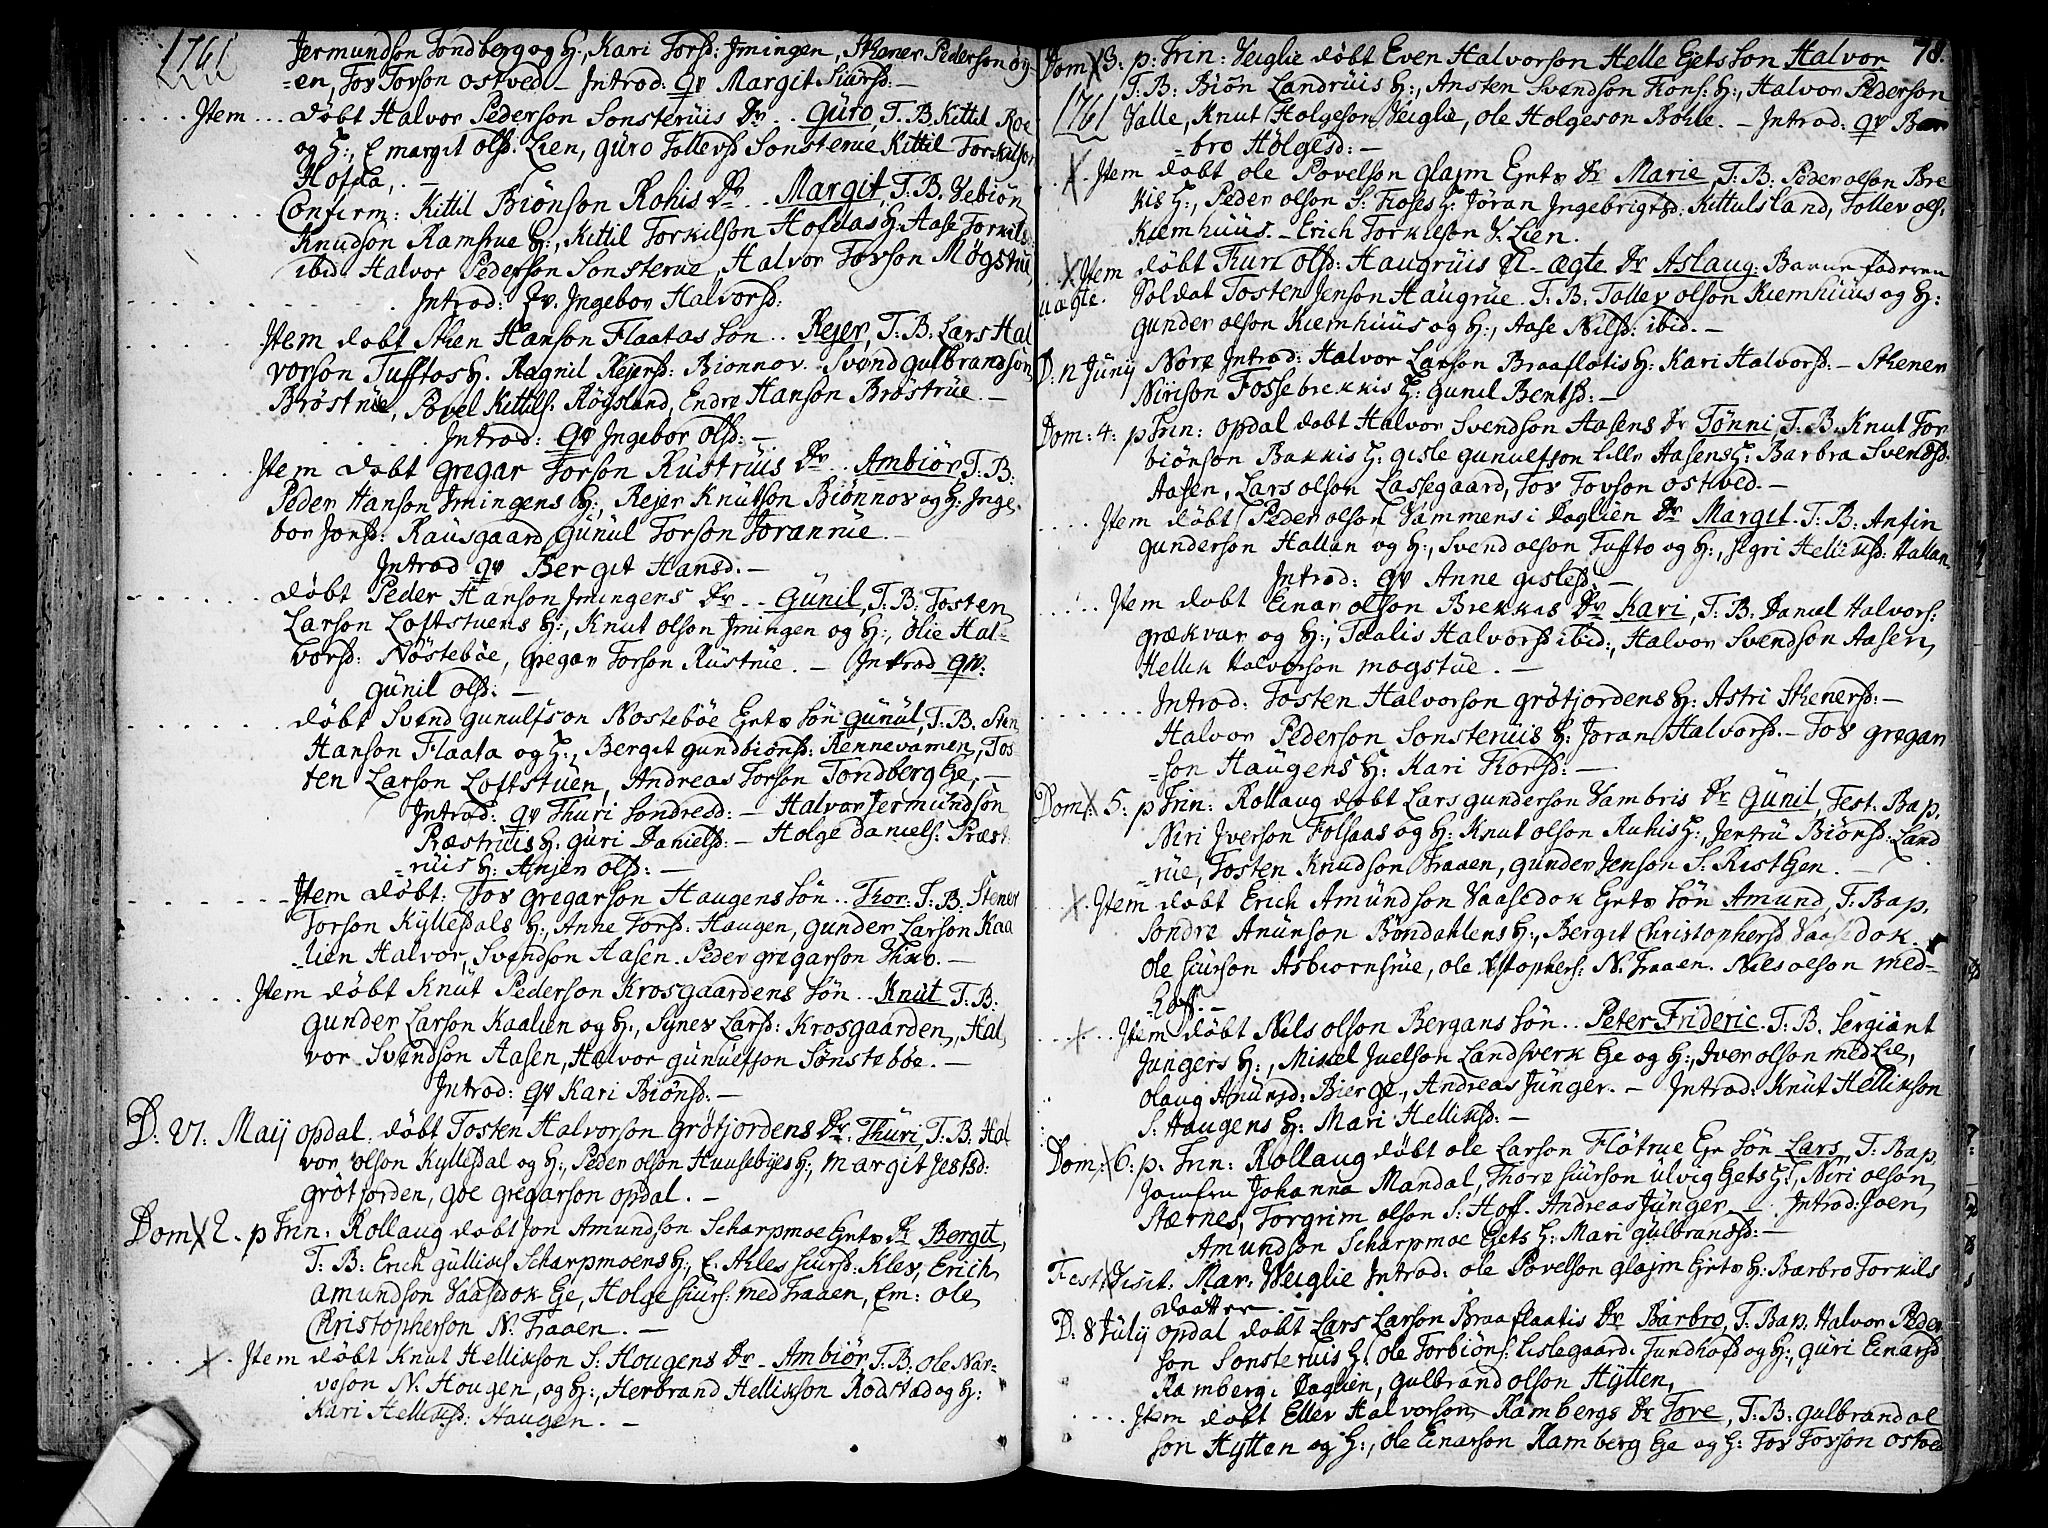 1761
Jermundson Tondberg og H:, Kari Torsd: Jmingen, Stener Pederson öy-
=en, Tov Tovson ostved – Introd: qv Margit Siursd: –
Item döbt Halvor Pederson Sonsteruis Dr. Guro, T.B. Kittil Roe
og H:, E margit olsd. Lien, Guro Tollevsd Sonsterue Kittil Torkilson
Hofda, . –
Confirm: Kittil Biönson Rohis Dr Margit, T.B. Vebiön
Knudson Ramsrue H:, Kittil Torkilson Hofdas H: Aase Torkils:
ibid: Halvor Pederson Sonsterue, Halvor Tovson Mogstue,
Introd: qv. Ingebor Halvorsd:
Item dobt Sten Hanson Flaatas Son Rejer, T.B. Lars Hal
vorson Tufftos H. Ragnil Rejersd: Bionnov. Svend Gulbrandson
Bröstrue, Povel Kittils. Röysland, Endre Hanson Bröstrue. –
Introd: qv Ingebor olsd: –
Item dobt gregar Torson Rustruis Dr Ambiör, T.B:
Peder Hanson Jmingens H:, Rejer Knutson Biönnov og H: Inge
bor Jonsd: Rausgaard Gunul Torson Joranrue. –
Introd qv Bergit Hansd. –
döbt Peder Hanson Jmingens Dr Gunil, T:B: Tosten
Larson Loftstuens H:, Knut olson Jmingen og H:, olie Hal-
vorsd: Nösteböe, gregar Torson Rustrue. – Introd qv:
Gunil olsd: –
döbt Svend Gunulfson Nostebøe Gets Sön Gunul, T:B. Sten
Hanson Flaata og H:, Bergit Gundbiönsd: Rennevamen, Tos
ten Larson Loftstuen, Andreas Torson Tondberg Ge, –
Introd: qv Thuri Sondredd: – Halvor Jermundson
Ræstruis H: Guri Danielsd: – Holge Daniels: Præst
=ruis H: Anjer olsd: –
Item döbt: Tov Gregarson Haugens Sön Thor: T:B: Stener
Torson Kylledals H:, Anne Torsd: Haugen, Gunder Larson Kaa
=lien Halvor, Svendson Aasen. Peder gregarson Thio. –
Item döbt Knut Pederson Krosgaardens Sön Knut T:B:
Gunder Larson Kaalien og H:, Synev Larsd: Krosgaarden, Hal
vor Svendson Aasen, Halvor Gunulfson Sönstebøe. –
Introd: qv Kari Biönsd: –
D: 27: Maij opdal. döbt Tosten Halvorson Grötjordens Dr. Thuri, T.B. Hal
vor olson Kylledal og H:, Peder olson Huusebyes H:, Margit Jestsd:
Grötjorden, Goe Gregarson opdal. –
Dom 2. p Trin: Rollaug dobt Jon Amundson Scharpmoe Gets Dr Bergit,
T:B: Erich Gullichs Scharpmoens H:, E. Ales Siursd: Klev, Erich
Amundson Vaasedok Ge, Holge Siurs: med Traaen, Em: ole
Christopherson N: Traaen. –
Item döbt Knut Hellikson S: Hougens Dr Ambiör, T.B. ole Nar-
veson N: Hougen, og H:, Herbrand Hellikson Rodstad og H:
Kari Helliksd: Haugen. –
78.
Dom 3: p: Trin: Veiglie döbt Even Halvorson Helle Gets Son Halvor
1761
T:B: Biön Landruis H:, Ansten Svendson Fons: H:, Halvor Pederson
Valle, Knut Holgeson Veiglie, ole Holgeson Bohle. – Introd: qv Bar
=bro Hölgesd: –
Item dobt ole Povelson Glajm Gets Dr Marie, T.B: Peder olson Bre
kis H:, Peder olson S: Foses H: Jöran Ingebrigtsd: Kittulsland, Tollev ols:
Kiemhuus. – Erich Torkilson V: Lien.
Item döbt Turi olsd: Haugruis U-ægte Dr Aslaug. Barnefaderen
uægte. Soldat Tosten Jenson Haugrue. T:B: Tollev olson Kiemhuus og H:
Gunder olson Kiemhuus og H:, Aase Nilsd: ibid. –
D: 11 Junij Nore Introd: Halvor Larson Braaflotis H: Kari Halvorsd: – Stener
Nirison Fossebrekkis H: Gunil Bentsd: –
Dom: 4: p Trin: opdal dobt Halvor Svendson Aasens Dr Tönni, T:B: Knut Tor
biönson Bakkis H: Gisle Gunulfson Lille Aasens H: Barbra Svendsd:
Aasen, Lars olson Lassegaard, Tov Tovson ostved. –
Item döbt Peder olson Vammens i Daglien Dr Margit T:B: Anfin
Gunderson Hallan og H:, Svend olson Tuffto og H:, Sigri Helliksd: Hallan
Introd: qv Anne Gislesd: –
Item dobt Einar olson Brekkas Dr Kari, T:B. Daniel Halvors:
Grækvar og H:, Taalis Halvorsd ibid:, Halvor Svendson Aasen,
Hellik Halvorson Mogstue. –
Introd: Tosten Halvorson Grötjordens H: Astri Stenersd: –
Halvor Pederson Sonsteruis H: Joran Halvorsd. – Tov gregar
=son Haugens H: Kari Torsd: –
Dom: 5: p Trin: Rollaug dobt Lars Gunderson Vambris Dr Gunil, Test: Bap,
Niri Iverson Folsaas og H: Knut olson Ruhis H:, Jertru Biönsd: Land
=rue, Tosten Knudson Traaen, Gunder Jenson S: Ristgen. –
Item dobt Erich Amundson Vaasedok Gets Sön Amund, T:Bap,
Sondre Anunson Böndahlens H:, Bergit Christophersd Vaasedok.
ole Siurson Asbiornsrue, ole Xstophers: N: Traaen. Niels olson Med-
=Hoff. –
Item döbt Niels olson Bergans Sön Peter Frideric. T:B. Sergiant
Jungers H:, Mikel Juelson Landsverk Ge og H:, Iver olson medLie,
olaug Anunsd: Bierge, Andreas Junger. – Introd: Knut Hellikson
S: Haugens H: Mari Helliksd: –
Dom: 6: p. Trin: Rollaug döbt ole Larson Flötrue Ge Sön Lars, T:Bap,
Jomfru Johanna Mandal, Thore Siurson Ulvig Gets H:, Niri olson
Stærnes, Torgrim olson S: Hoff. Andreas Junger. – Introd: Joen
Amundson Scharpmoe Gets H: Mari Gulbrandsd: –
Fest: Visit. Mar: Veiglie Introd: ole Povelson Glajm Gets H: Barbro Torkils
daatter. –
D: 8 Julij opdal dobt Lars Larson Braaflaatis Dr Barbro, T:Bap. Halvor Peder
son Sonsteruis H: ole Torbiöns: Lislegaard. Tundhofd og H:, Guri Einarsd
Ramberg i Daglien, Gulbrand olson Hytten,
Item dobt Ellev Halvorson Rambergs Dr Tore, T.B: Gulbrand ol
son Hytten og H:, ole Einarson Ramberg Ge og H: Tov Tovson ostved